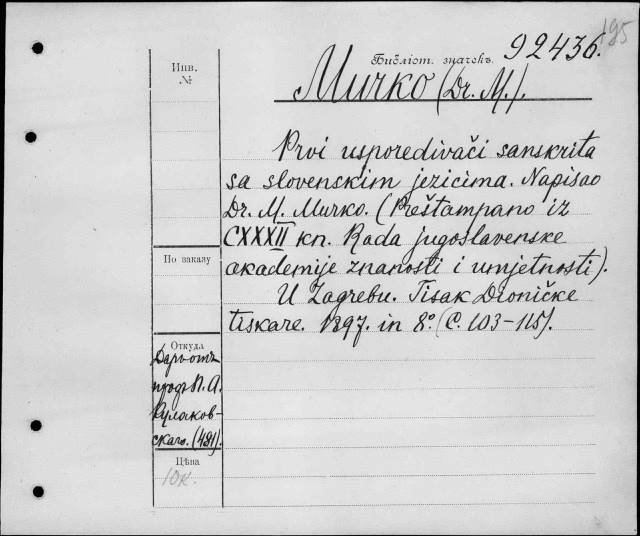 195
Библіот. значекъ. 92436.
Инв.
№
Murko (Dr. M.).
Prvi usporedivači sanskrita
sa slovenskim jezicima. Napisao
Dr. M. Murko. (Preštampano iz
CXXXII kn. Rada jugoslavenske
akademije znanosti i umjetnosti).
U Zagrebu. Tisak Dioničke
tiskare. 1897. in 8º. (С. 103-115).
По заказу
Откуда
Даръ отъ
проф. П. А.
Кулаков-
скаго. (481).
Цѣна
10к.